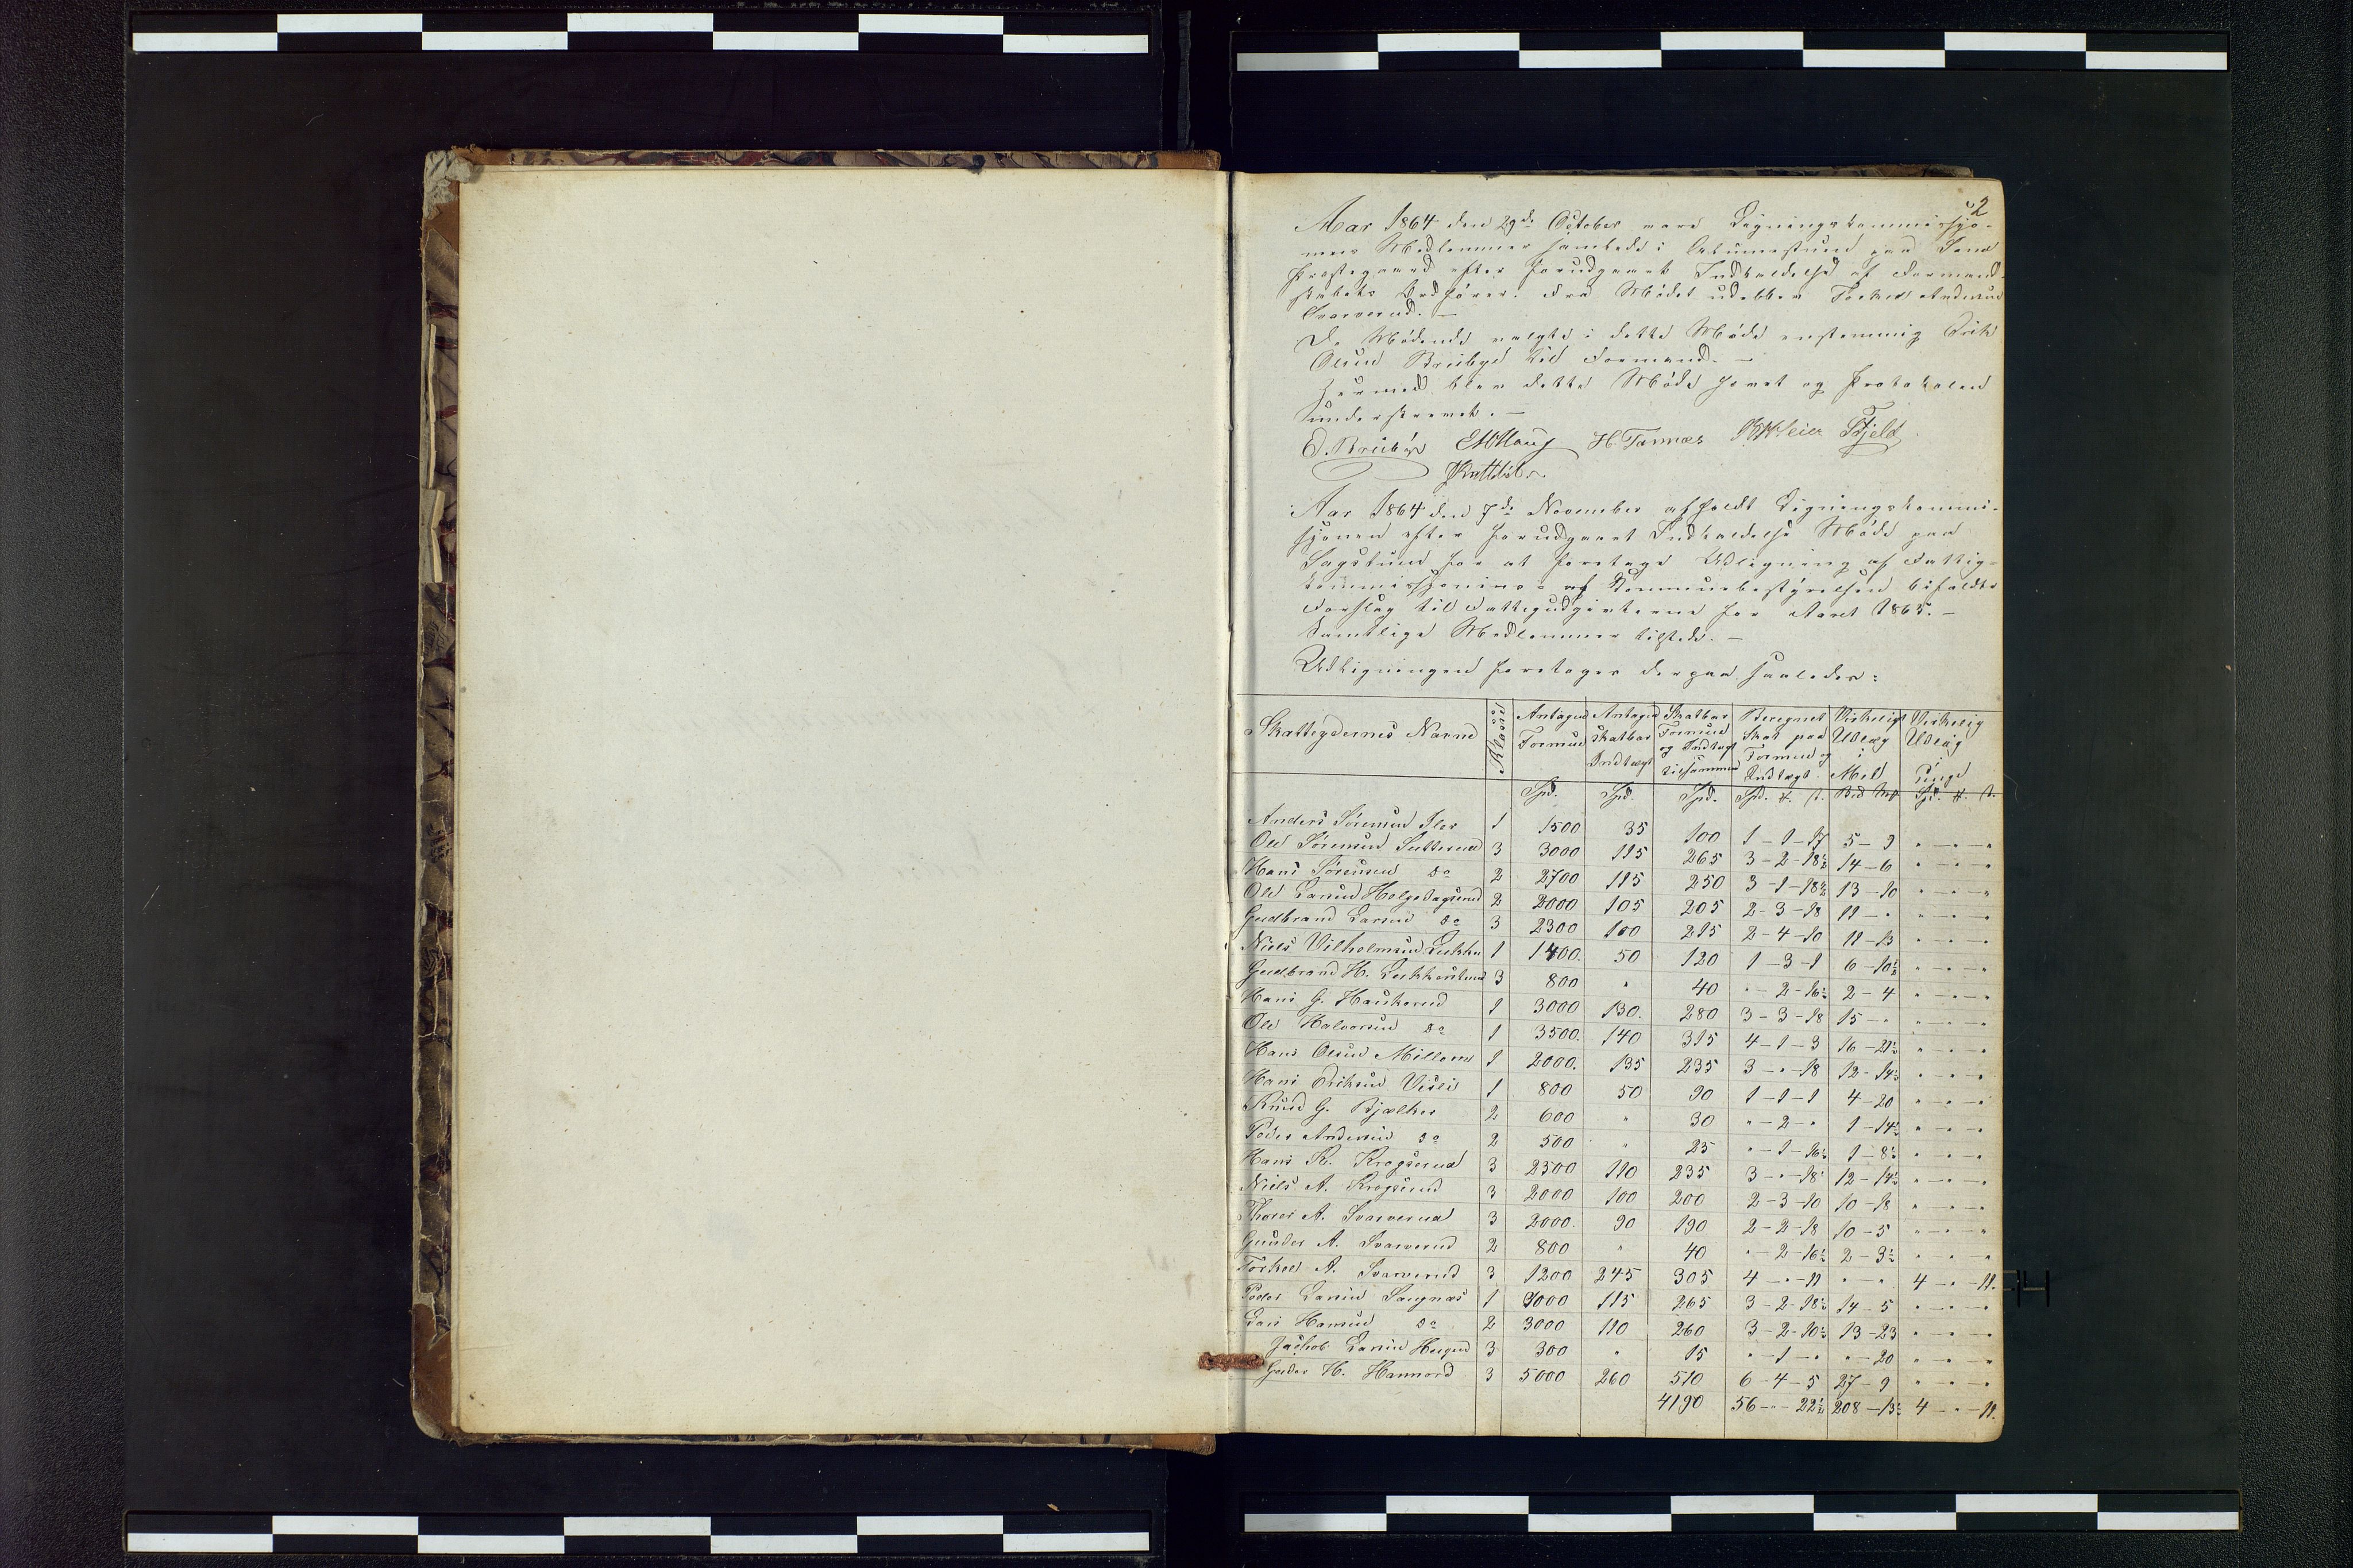 2
Aar 1864 den 29de October vare Ligningskommissjo-
nens Medlemmer samlede i paa
Præstegaard efter forudgaaet Indkaldelse af Formand-
skabets Ordfører. Fra Mødet udeblev Torkel Andersen
Svarverud. –
De Mødende valgte i dette Møde enstemmig Erik
Olsen Brubye til Formand. –
Hermed blev dette Møde hævet og Protokolen
underskrevet. –
E. Brubye H. Tannæs Fjeld
Aar 1864 den 7de November afholdt Ligningskommi-
sjonen efter forudgaaet Indkaldelse Møde paa
Sagstuen for at foretage Udligning af Fattig-
kommissjonens af Kommunebestyrelsen bifaldte
Forslag til Fattigudgifterne for Aaret 1865. –
Samtlige Medlemmer tilstede. –
Udligningen foretages derpaa saaledes:
Skatteydernes Navne Klasse Antagen Formue Antagen skatbar Indtægt Skatbar Formue og Indtægt tilsammen Beregnet Skat paa Formue og Indtægt Virkelig Udlæg i Mel Virkelig Udlæg i Penge
Spd. Spd. Spd. Spd. Spd.
Anders Sørensen 1 1500 35 100 1-1-17 5-9 " - " - "
Ole Sørensen 3 3000 115 265 3-2-18½ 14-6 " - " - "
Hans Sørensen do 2 2700 115 250 3-1-18½ 13-10 " - " - "
Ole Larsen Helgedagsrud 2 2000 105 205 2-3-18 11-" " - " - "
Gudbrand Larsen do 3 2300 100 215 2-4-10 11-13 " - " - "
Niels Vilhelmsen 1 1400. 50 120 1-3-1 6-10½ " - " - "
Gudbrand H. 3 800 " 40 "-2-16½ 2-4 " - " - "
Hans G. Haukerud 1 3000 130. 280 3-3-18 15-" " - " - "
Ole Halvorsen do 1 3500. 140 315 4-1-3 16-21½ " - " - "
Hans Olsen Millom 1 2000. 135 235 3-"-18 12-14½ " - " - "
Hans Eriksen 1 800 50 90 1-1-1 4-20 " - " - "
Knud G. Bjælker 2 600 " 30 "-2-" 1-14½ " - " - "
Peder Andersen do 2 500 " 25 "-1-16½ 1-8½ " - " - "
Hans K. Krogsrud 3 2500 110 235 3-"-18½ 12-14½ " - " - "
Niels A. Krogsrud 3 2000 100 200 2-3-10 10-18 " - " - "
A. Svarverud 3 2000. 90 190 2-2-18 10-5 " - " - "
Gunder A. Svarverud 2 800 " 40 "-2-16½ 2-3½ " - " - "
Torkel A. Svarverud 3 1200 245 305 4-"-11 "-" 4-"-11.
Peder Larsen Saugnæs 1 3000 115 265 3-2-18½ 14-5 " - " - "
Lars Hansen do 2 3000 110 260 3-2-10½ 13-23 " - " - "
Jachob Larsen 3 300 " 15 "-1-" "-20 " - " - "
Gulder H. Hannord 3 5000 260 510 6-4-5 27-9 " - " - "
4190 56-"-22½ 208-13½ 4-"-11.